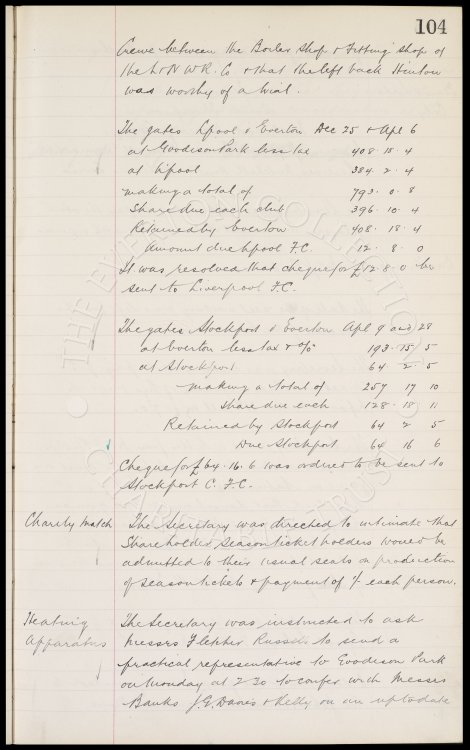 104
Crewe between the Boiler Shop & Fitting Shop of
the L & N W R. Co & that the left back Hinton
was worthy of a trial.
The gates Lpool v Everton Dec 25 & Apl 6
at Goodison Park less tax 408 . 18 . 4
at Lpool 384 . 2 . 4
making a total of 793 . 0 . 8
Share due each club 396 . 10 . 4
Retained by Everton 408 . 18 . 4
Amount due Lpool F.C. 12 . 8 . 0
It was resolved that cheque for £12 . 8 . 0 be
sent to Liverpool F.C.
The gates Stockport v Everton Apl 9 and 28
at Everton less tax & % 193 . 15 . 5
at Stockport 64 . 2 . 5
making a total of 257 17 10
Share due each 128 . 18 . 11
Retained by Stockport 64 2 . 5
Due Stockport 64 16 6
Cheque for £64 . 16 . 6 was ordered to be sent to
Stockport C. F.C.
Charity Match The Secretary was directed to intimate that
Shareholders, Season ticket holders would be
admitted to their usual seats on production
of season tickets & payment of 1/- each person.
Heating The Secretary was instructed to ask
Apparatus Messrs Fletcher Russell to send a
practical representative to Goodison Park
on Monday at 2 30 to confer with Messrs
Banks J.E. Davies & Kelly on an up to date
THE EVERTON COLLECTION
CHARITABLE TRUST